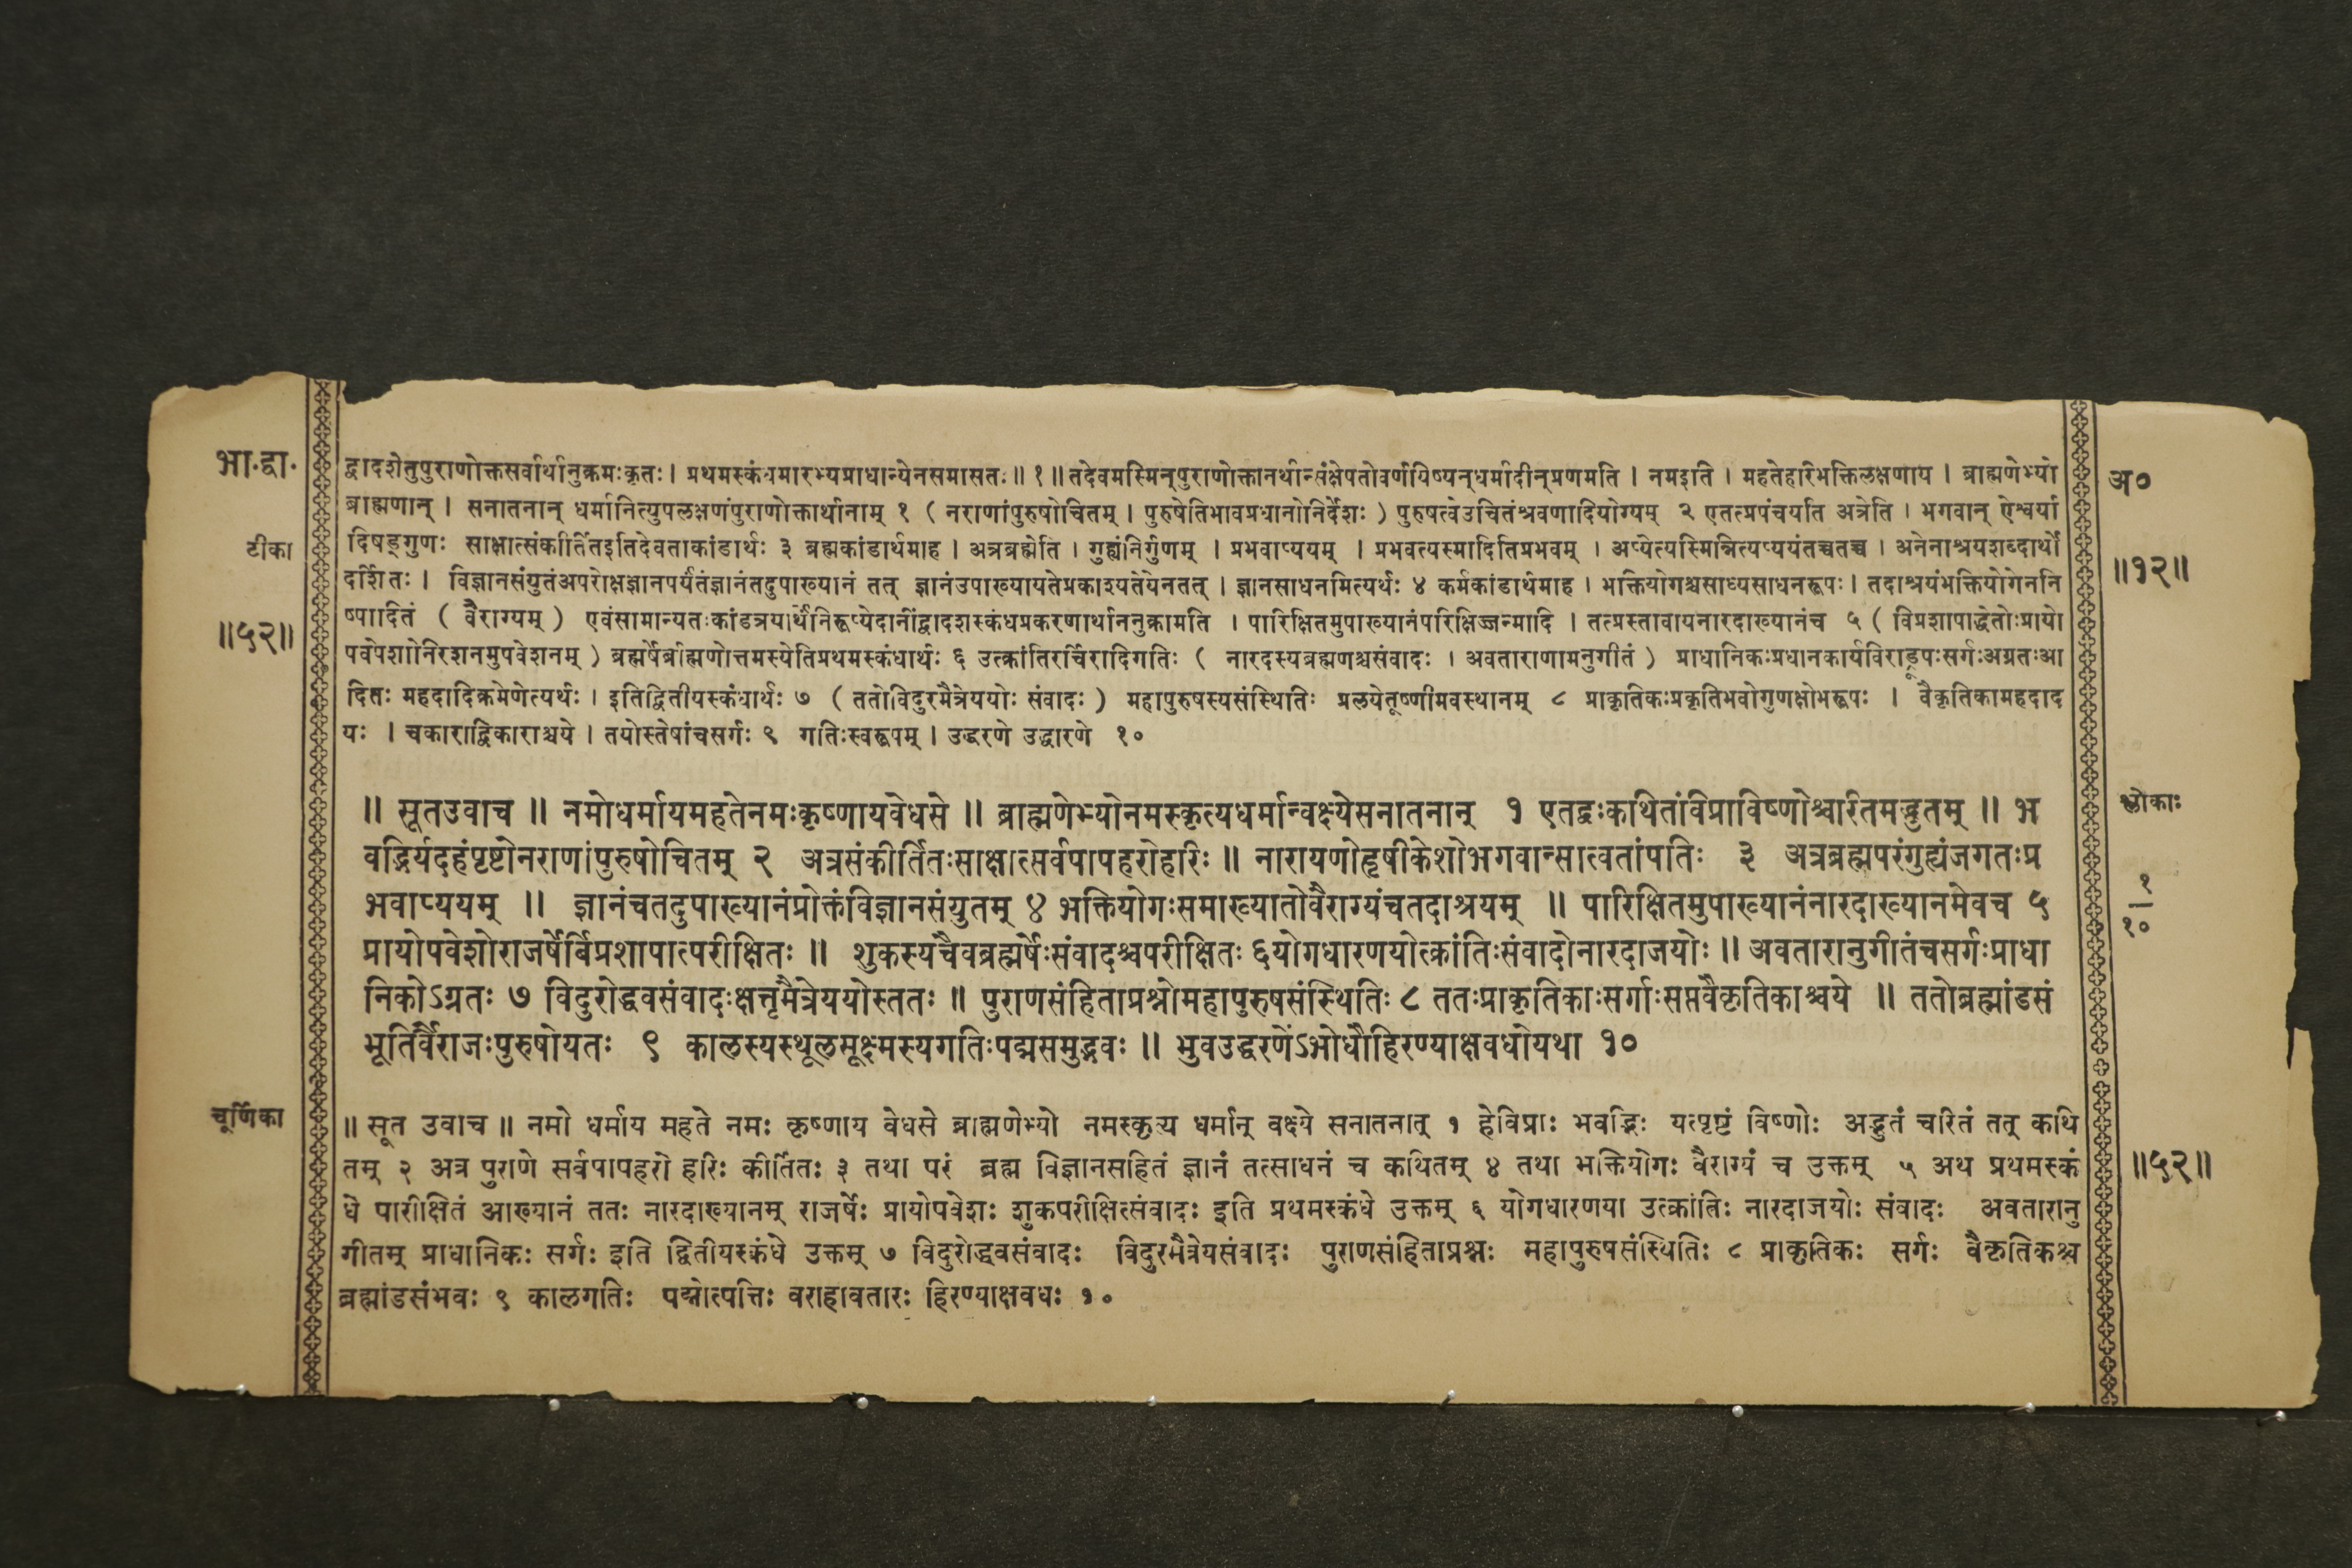 भा.द्वा.
द्वादशेतुपुराणोक्तसर्वार्थानुक्रमःकृतः। प्रथमस्कंधमारभ्यप्राधान्येनसमासतः॥ १॥ तदेवमस्मिन्पुराणोक्तानर्थान्संक्षेपतोवर्णयिष्यन्धर्मादीन्प्रणमति । नमइति । महतेहरिभक्तिलक्षणाय । ब्राह्मणेभ्यो
अ०
ब्राह्मणान् । सनातनान् धर्मानित्युपलक्षणंपुराणोक्तार्थानाम् १ ( नराणांपुरुषोचितम् । पुरुषेतिभावप्रधानोनिर्देशः ) पुरुषत्वेउचितंश्रवणादियोग्यम् २ एतत्प्रपंचयति अत्रेति । भगवान् ऐश्वर्या
टीका
दिषड्गुणः साक्षात्संकीर्तितइतिदेवताकांडार्थः ३ ब्रह्मकांडार्थमाह । अत्रब्रह्मेति । गुह्यंनिर्गुणम् । प्रभवाप्ययम् । प्रभवत्यस्मादितिप्रभवम् । अप्येत्यस्मिन्नित्यप्ययंतच्चतच्च । अनेनाश्रयशब्दार्थो
॥१२॥
दर्शितः । विज्ञानसंयुतंअपरोक्षज्ञानपर्यंतंज्ञानंतदुपाख्यानं तत् ज्ञानंउपाख्यायतेप्रकाश्यतेयेनतत् । ज्ञानसाधनमित्यर्थः ४ कर्मकांडार्थमाह । भक्तियोगश्चसाध्यसाधनरूपः । तदाश्रयंभक्तियोगेननि
॥५२॥
ष्पादितं ( वैराग्यम् ) एवंसामान्यतःकांडत्रयार्थंनिरूप्येदानींद्वादशस्कंधप्रकरणार्थाननुक्रामति । पारिक्षितमुपाख्यानंपरिक्षिज्जन्मादि । तत्प्रस्तावायनारदाख्यानंच ५ ( विप्रशापाद्धेतोःप्रायो
पवेशोनिरशनमुपवेशनम् ) ब्रह्मर्षेर्ब्राह्मणोत्तमस्येतिप्रथमस्कंधार्थः ६ उत्क्रांतिरर्चिरादिगतिः ( नारदस्यब्रह्मणश्चसंवादः । अवताराणामनुगीतं ) प्राधानिकःप्रधानकार्यविराड्रूपःसर्गःअग्रतःआ
दितः महदादिक्रमेणेत्यर्थः । इतिद्वितीयस्कंधार्थः ७ ( ततोविदुरमैत्रेययोः संवादः ) महापुरुषस्यसंस्थितिः प्रलयेतूष्णीमवस्थानम् ८ प्राकृतिकःप्रकृतिभवोगुणक्षोभरूपः । वैकृतिकामहदाद
यः । चकाराद्विकाराश्चये । तयोस्तेषांचसर्गः ९ गतिःस्वरूपम् । उद्धरणे उद्धारणे १०
॥ सूतउवाच ॥ नमोधर्मायमहतेनमःकृष्णायवेधसे ॥ ब्राह्मणेभ्योनमस्कृत्यधर्मान्वक्ष्येसनातनान् १ एतद्वःकथितंविप्राविष्णोश्चरितमद्भुतम् ॥ भ
श्लोकाः
वद्भिर्यदहंपृष्टोनराणांपुरुषोचितम् २ अत्रसंकीर्तितःसाक्षात्सर्वपापहरोहरिः ॥ नारायणोहृषीकेशोभगवान्सात्वतांपतिः ३ अत्रब्रह्मपरंगुह्यंजगतःप्र
१
भवाप्ययम् ॥ ज्ञानंचतदुपाख्यानंप्रोक्तंविज्ञानसंयुतम् ४ भक्तियोगःसमाख्यातोवैराग्यंचतदाश्रयम् ॥ पारिक्षितमुपाख्यानंनारदाख्यानमेवच ५
१०
प्रायोपवेशोराजर्षेर्विप्रशापात्परीक्षितः ॥ शुकस्यचैवब्रह्मर्षेःसंवादश्चपरीक्षितः ६योगधारणयोत्क्रांतिःसंवादोनारदाजयोः ॥ अवतारानुगीतंचसर्गःप्राधा
निकोऽग्रतः ७ विदुरोद्धवसंवादःक्षत्तृमैत्रेययोस्ततः ॥ पुराणसंहिताप्रश्नोमहापुरुषसंस्थितिः ८ ततःप्राकृतिकाःसर्गाःसप्तवैकृतिकाश्चये ॥ ततोब्रह्मांडसं
भूतिर्वैराजःपुरुषोयतः ९ कालस्यस्थूलसूक्ष्मस्यगतिःपद्मसमुद्भवः ॥ भुवउद्धरणेंऽभोधौहिरण्याक्षवधोयथा १०
चूर्णिका
॥ सूत उवाच ॥ नमो धर्माय महते नमः कृष्णाय वेधसे ब्राह्मणेभ्यो नमस्कृत्य धर्मान् वक्ष्ये सनातनान् १ हेविप्राः भवद्भिः यत्पृष्टं विष्णोः अद्भुतं चरितं तत् कथि
तम् २ अत्र पुराणे सर्वपापहरो हरिः कीर्तितः ३ तथा परं ब्रह्म विज्ञानसहितं ज्ञानं तत्साधनं च कथितम् ४ तथा भक्तियोगः वैराग्यं च उक्तम् ५ अथ प्रथमस्कं
॥५२॥
धे पारीक्षितं आख्यानं ततः नारदाख्यानम् राजर्षेः प्रायोपवेशः शुकपरीक्षित्संवादः इति प्रथमस्कंधे उक्तम् ६ योगधारणया उत्क्रांतिः नारदाजयोः संवादः अवतारानु
गीतम् प्राधानिकः सर्गः इति द्वितीयस्कंधे उक्तम् ७ विदुरोद्धवसंवादः विदुरमैत्रेयसंवादः पुराणसंहिताप्रश्नः महापुरुषसंस्थितिः ८ प्राकृतिकः सर्गः वैकृतिकश्च
ब्रह्मांडसंभवः ९ कालगतिः पद्मोत्पत्तिः वराहावतारः हिरण्याक्षवधः १०